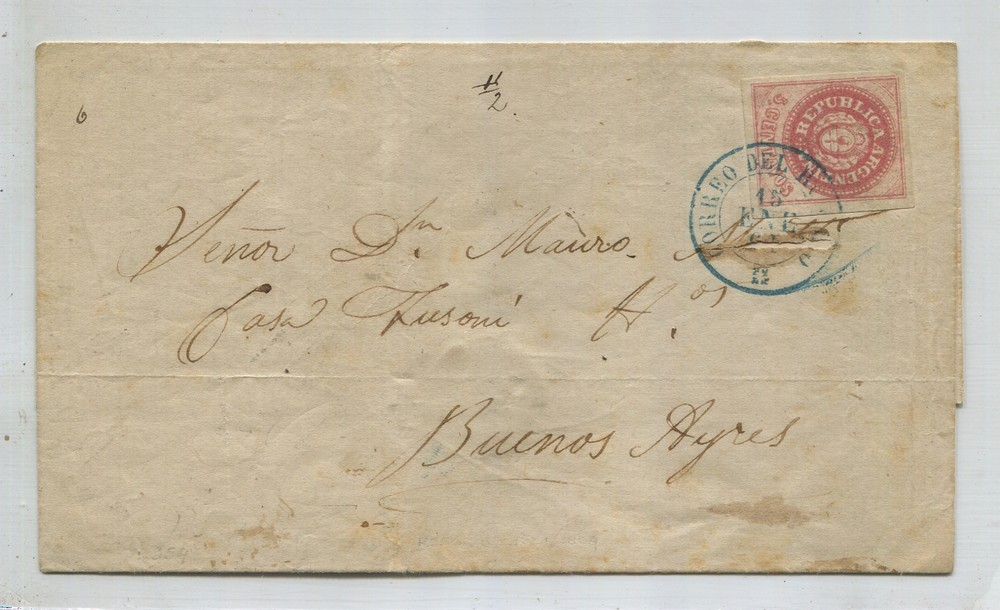 6
11/2
REPUBLICA ARGENTINA
5 CENTAVOS
CORREO DEL
15
ENE
Señor Dn Mauro
Casa Fusoni H.os
Buenos Ayres